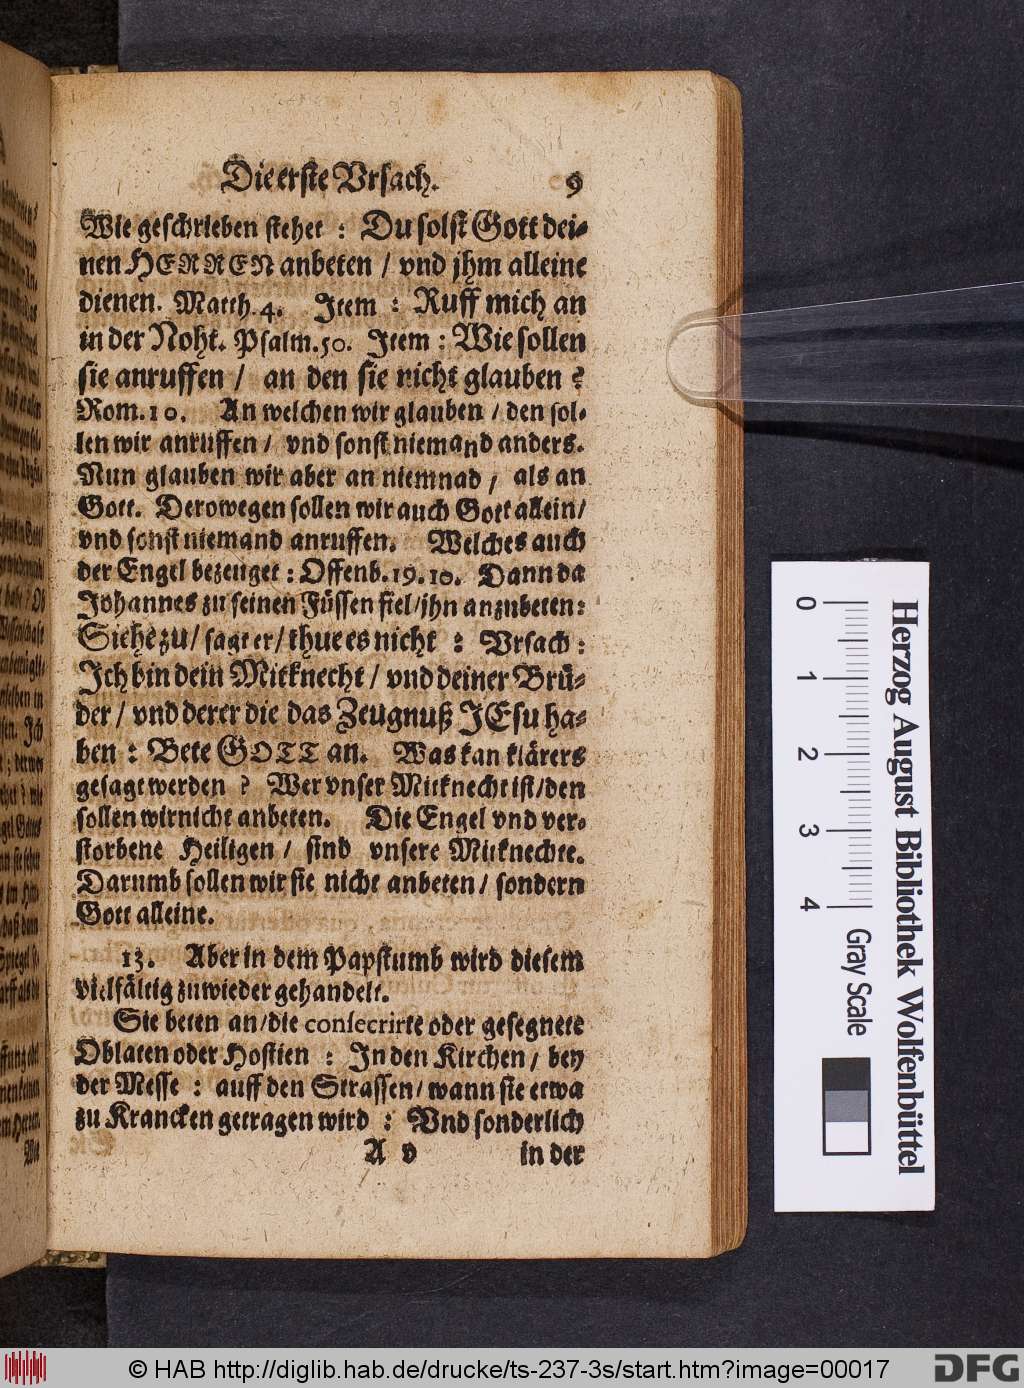 Die erste Vrsach. 9
Wie geschrieben stehet : Du solst Gott dei-
nen HERREN anbeten / vnd jhm alleine
dienen. Matth. 4. Item : Ruff mich an
in der Noht. Psalm. 50. Item : Wie sollen
sie anruffen / an den sie nicht glauben ?
Rom. 10. An welchen wir glauben / den sol-
len wir anruffen / vnd sonst niemand anders.
Nun glauben wir aber an niemnad / als an
Gott. Derowegen sollen wir auch Gott allein /
vnd sonst niemand anruffen. Welches auch
der Engel bezeuget : Offenb. 19. 10. Dann da
Johannes zu seinen Füssen fiel / jhn anzubeten :
Siehe zu / sagt er / thue es nicht : Vrsach :
Ich bin dein Mitknecht / vnd deiner Brü-
der / vnd derer die das Zeugnuß JEsu ha-
ben : Bete GOTT an. Was kan klärers
gesagt werden ? Wer vnser Mitknecht ist / den
sollen wir nicht anbeten. Die Engel vnd ver-
storbene Heiligen / sind vnsere Mitknechte.
Darumb sollen wir sie nicht anbeten / sondern
Gott alleine.
13. Aber in dem Papstumb wird diesem
vielfältig zuwieder gehandelt.
Sie beten an / die consecrirte oder gesegnete
Oblaten oder Hostien : In den Kirchen / bey
der Messe : auff den Strassen / wann sie etwa
zu Krancken getragen wird : Vnd sonderlich
A v in der
0 1 2 3 4
Gray Scale
Herzog August Bibliothek Wolfenbüttel
© HAB http://diglib.hab.de/drucke/ts-237-3s/start.htm?image=00017
DFG